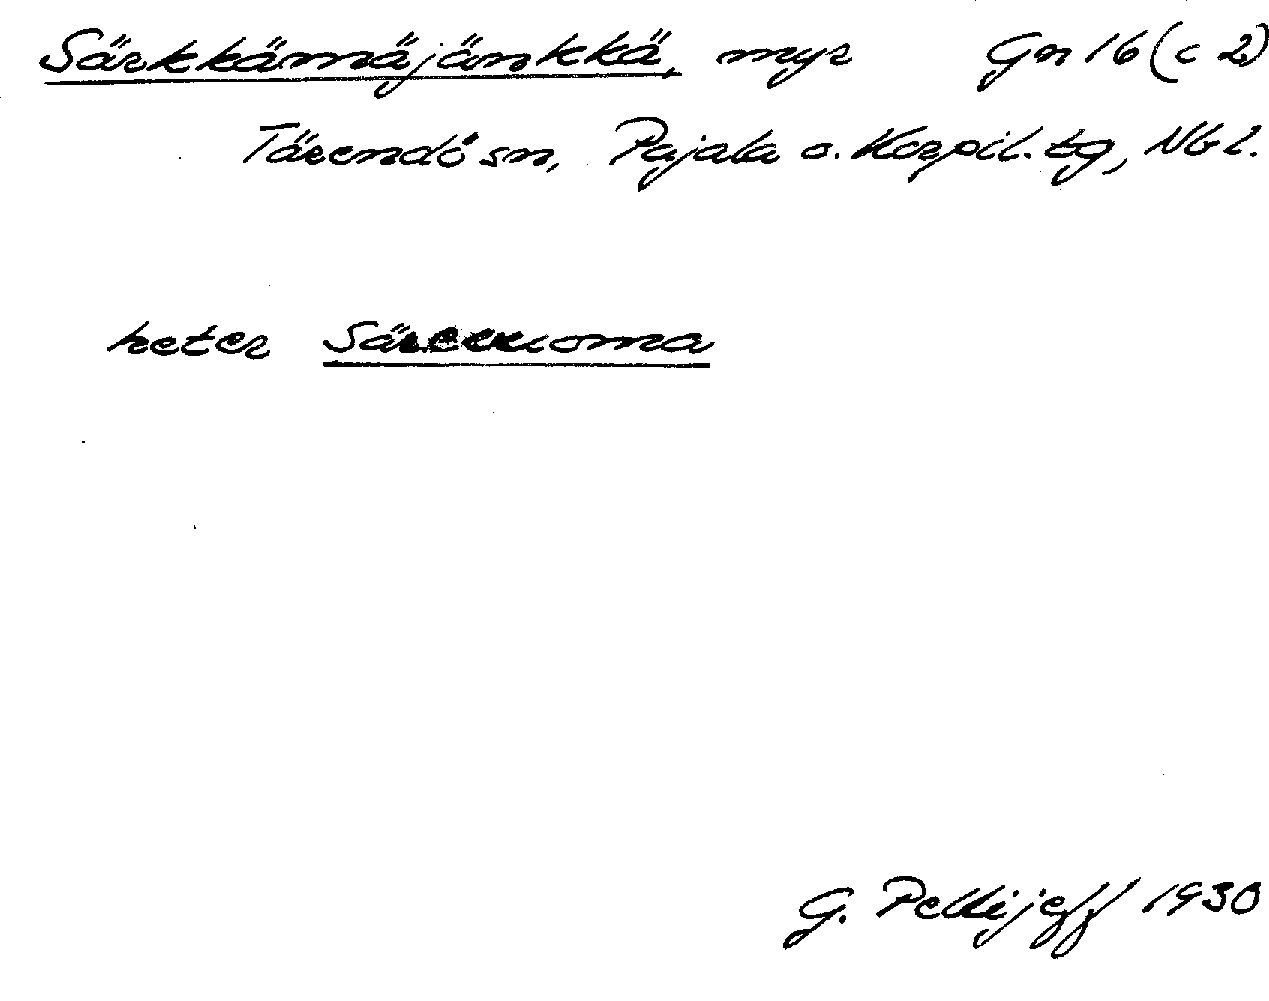 Särkkämäjänkkä, myr Gn 16 (c 2)
Tärendö sn, Pajala o. Korpil. tg, Nbl.
heter
G. Pellijeff 1930